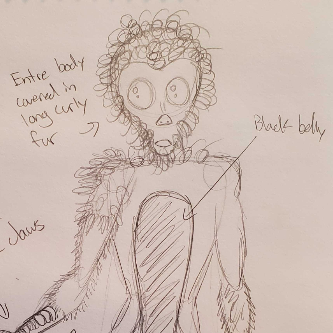 Entire body
covered in
long curly
fur
Black belly